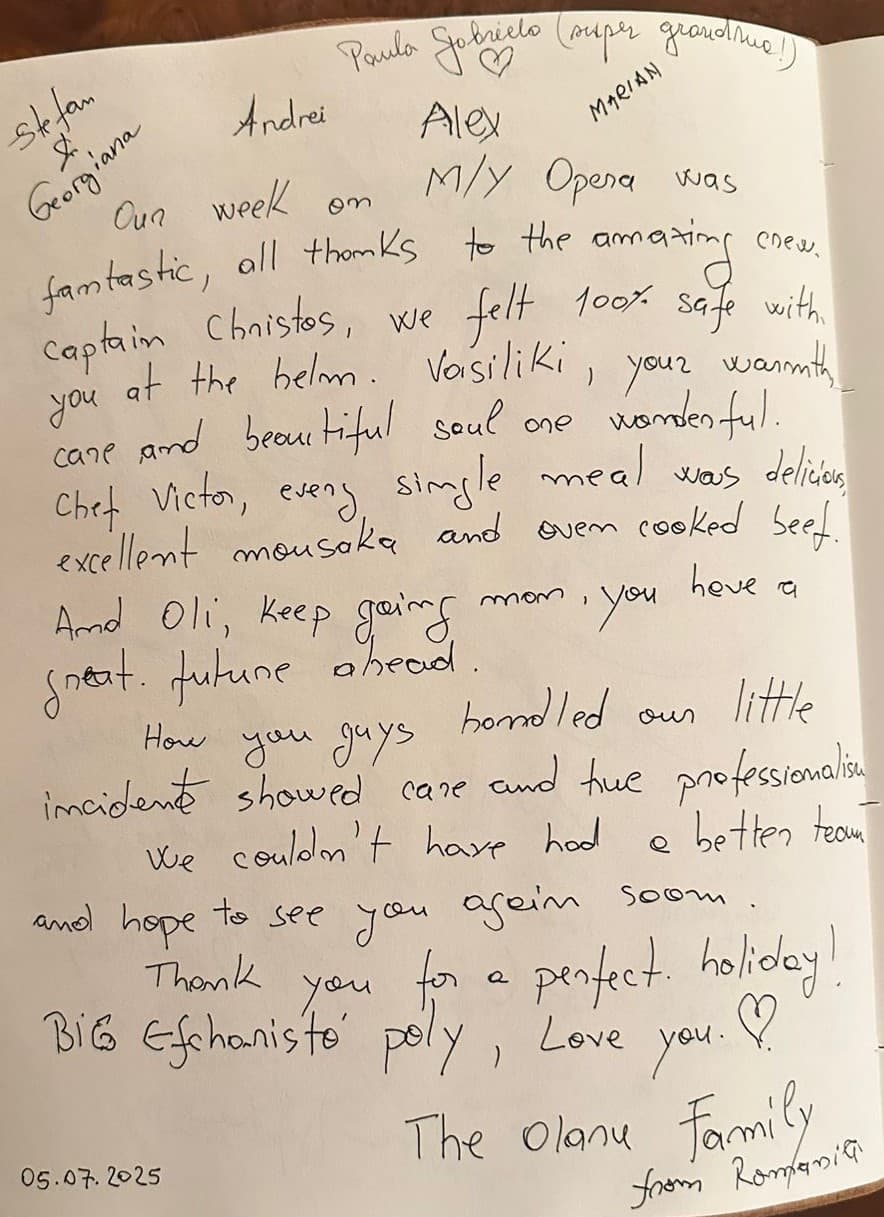 Paula Gabriela (super grandma!) ♡
Stefan
&
Georgiana
Andrei
Alex
MARIAN
Our week on M/Y Opera was
fantastic, all thanks to the amazing crew.
Captain Christos, we felt 100% safe with
you at the helm. Vasiliki, your warmth,
care and beautiful soul are wonderful.
Chef Victor, every single meal was delicious,
excellent mousaka and oven cooked beef.
And Oli, keep going man, you have a
great future ahead.
How you guys handled our little
incident showed care and true professionalism
We couldn't have had a better team
and hope to see you again soon.
Thank you for a perfect holiday!
BIG Efcharistó poly, Love you. ♡
The Olanu Family
from Romania
05.07.2025